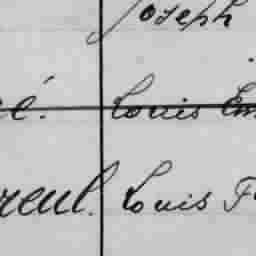 Joseph
é. Louis Em
reul. Louis F